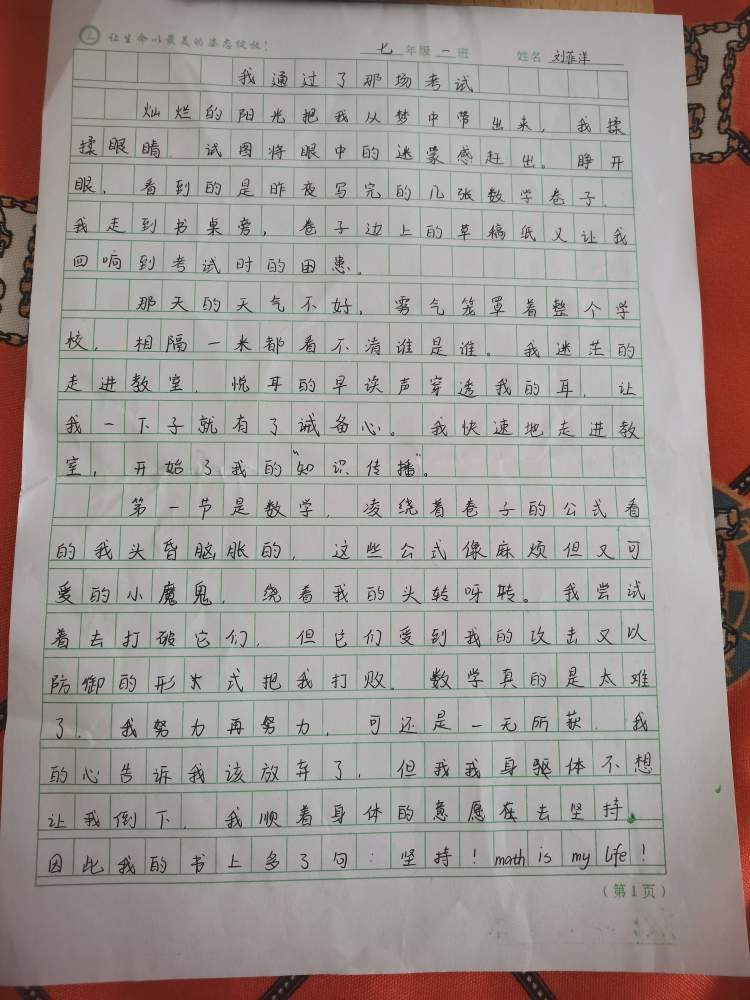 让生命以最美的姿态绽放！ 七 年级 一 班 姓名 刘菲洋
我通过了那场考试
灿烂的阳光把我从梦中带出来，我揉
揉眼睛，试图将眼中的迷蒙感赶出。睁开
眼，看到的是昨夜写完的几张数学卷子，
我走到书桌旁，卷子边上的草稿纸又让我
回响到考试时的困患。
那天的天气不好，雾气笼罩着整个学
校，相隔一米都看不清谁是谁。我迷茫的
走进教室，悦耳的早读声穿透我的耳，让
我一下子就有了诫备心。我快速地走进教
室，开始了我的“知识传播”。
第一节是数学，凌绕着卷子的公式看
的我头昏脑胀的，这些公式像麻烦但又可
爱的小魔鬼，绕着我的头转呀转。我尝试
着去打破它们，但它们受到我的攻击又以
防御的形式把我打败，数学真的是太难
了，我努力再努力，可还是一无所获，我
的心告诉我该放弃了，但我我身驱体不想
让我倒下，我顺着身体的意愿在去坚持，
因此我的书上多了句：坚持！math is my life！
（第1页）